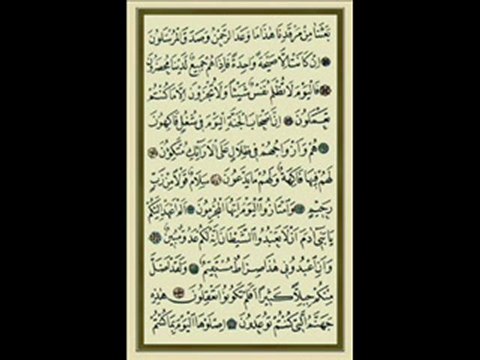 بَعَثَنَا مِنْ مَرْقَدِنَا هٰذَا مَا وَعَدَ الرَّحْمٰنُ وَصَدَقَ الْمُرْسَلُونَ
اِنْ كَانَتْ اِلَّا صَيْحَةً وَاحِدَةً فَاِذَا هُمْ جَمِيعٌ لَدَيْنَا مُحْضَرُونَ
فَالْيَوْمَ لَا تُظْلَمُ نَفْسٌ شَيْئًا وَلَا تُجْزَوْنَ اِلَّا مَا كُنْتُمْ
تَعْمَلُونَ اِنَّ اَصْحَابَ الْجَنَّةِ الْيَوْمَ فِى شُغُلٍ فَاكِهُونَ
هُمْ وَاَزْوَاجُهُمْ فِى ظِلَالٍ عَلَى الْاَرَائِكِ مُتَّكِؤُنَ
لَهُمْ فِيهَا فَاكِهَةٌ وَلَهُمْ مَا يَدَّعُونَ سَلَامٌ قَوْلًا مِنْ رَبٍّ
رَحِيمٍ وَامْتَازُوا الْيَوْمَ اَيُّهَا الْمُجْرِمُونَ اَلَمْ اَعْهَدْ اِلَيْكُمْ
يَا بَنِى اٰدَمَ اَنْ لَا تَعْبُدُوا الشَّيْطَانَ اِنَّهُ لَكُمْ عَدُوٌّ مُبِينٌ
وَاَنِ اعْبُدُونِى هٰذَا صِرَاطٌ مُسْتَقِيمٌ وَلَقَدْ اَضَلَّ
مِنْكُمْ جِبِلًّا كَثِيرًا اَفَلَمْ تَكُونُوا تَعْقِلُونَ هٰذِهِ
جَهَنَّمُ الَّتِى كُنْتُمْ تُوعَدُونَ اِصْلَوْهَا الْيَوْمَ بِمَا كُنْتُمْ